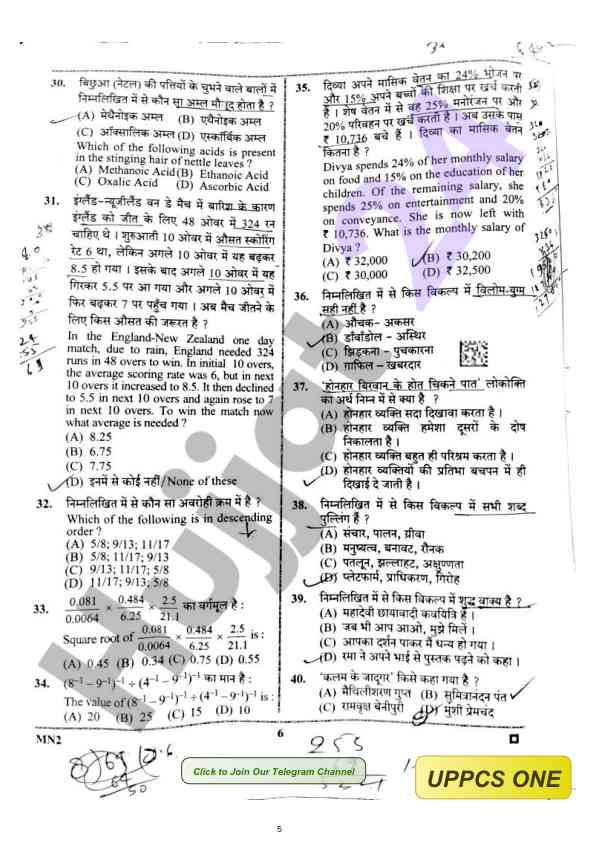 30. बिछुआ (नेटल) की पत्तियों के चुभने वाले बालों में
निम्नलिखित में से कौन सा अम्ल मौजूद होता है ?
(A) मेथैनोइक अम्ल (B) एथैनोइक अम्ल
(C) ऑक्सालिक अम्ल (D) एस्कॉर्बिक अम्ल
Which of the following acids is present
in the stinging hair of nettle leaves ?
(A) Methanoic Acid (B) Ethanoic Acid
(C) Oxalic Acid (D) Ascorbic Acid
31. इंग्लैंड-न्यूजीलैंड वन डे मैच में बारिश के कारण
इंग्लैंड को जीत के लिए 48 ओवर में 324 रन
चाहिए थे । शुरुआती 10 ओवर में औसत स्कोरिंग
रेट 6 था, लेकिन अगले 10 ओवर में यह बढ़कर
8.5 हो गया । इसके बाद अगले 10 ओवर में यह
गिरकर 5.5 पर आ गया और अगले 10 ओवर में
फिर बढ़कर 7 पर पहुँच गया । अब मैच जीतने के
लिए किस औसत की जरूरत है ?
In the England-New Zealand one day
match, due to rain, England needed 324
runs in 48 overs to win. In initial 10 overs,
the average scoring rate was 6, but in next
10 overs it increased to 8.5. It then declined
to 5.5 in next 10 overs and again rose to 7
in next 10 overs. To win the match now
what average is needed ?
(A) 8.25
(B) 6.75
(C) 7.75
(D) इनमें से कोई नहीं/None of these
32. निम्नलिखित में से कौन सा अवरोही क्रम में है ?
Which of the following is in descending
order ?
(A) 5/8; 9/13; 11/17
(B) 5/8; 11/17; 9/13
(C) 9/13; 11/17; 5/8
(D) 11/17; 9/13; 5/8
33. 0.081/0.0064 × 0.484/6.25 × 2.5/21.1 का वर्गमूल है :
Square root of 0.081/0.0064 × 0.484/6.25 × 2.5/21.1 is :
(A) 0.45 (B) 0.34 (C) 0.75 (D) 0.55
34. (8⁻¹ – 9⁻¹)⁻¹ ÷ (4⁻¹ – 9⁻¹)⁻¹ का मान है :
The value of (8⁻¹ – 9⁻¹)⁻¹ ÷ (4⁻¹ – 9⁻¹)⁻¹ is :
(A) 20 (B) 25 (C) 15 (D) 10
35. दिव्या अपने मासिक वेतन का 24% भोजन पर
और 15% अपने बच्चों की शिक्षा पर खर्च करती
है । शेष वेतन में से वह 25% मनोरंजन पर और
20% परिवहन पर खर्च करती है । अब उसके पास
₹ 10,736 बचे हैं । दिव्या का मासिक वेतन
कितना है ?
Divya spends 24% of her monthly salary
on food and 15% on the education of her
children. Of the remaining salary, she
spends 25% on entertainment and 20%
on conveyance. She is now left with
₹ 10,736. What is the monthly salary of
Divya ?
(A) ₹ 32,000 (B) ₹ 30,200
(C) ₹ 30,000 (D) ₹ 32,500
36. निम्नलिखित में से किस विकल्प में विलोम-युग्म
सही नहीं है ?
(A) औचक - अकसर
(B) डाँवाँडोल - अस्थिर
(C) झिड़कना - पुचकारना
(D) ग़ाफिल - खबरदार
37. 'होनहार बिरवान के होत चिकने पात' लोकोक्ति
का अर्थ निम्न में से क्या है ?
(A) होनहार व्यक्ति सदा दिखावा करता है ।
(B) होनहार व्यक्ति हमेशा दूसरों के दोष
निकालता है ।
(C) होनहार व्यक्ति बहुत ही परिश्रम करता है ।
(D) होनहार व्यक्तियों की प्रतिभा बचपन में ही
दिखाई दे जाती है ।
38. निम्नलिखित में से किस विकल्प में सभी शब्द
पुल्लिंग हैं ?
(A) संचार, पालन, ग्रीवा
(B) मनुष्यत्व, बनावट, रौनक
(C) पतलून, झल्लाहट, अक्षुण्णता
(D) प्लेटफार्म, प्राधिकरण, गिरोह
39. निम्नलिखित में से किस विकल्प में शुद्ध वाक्य है ?
(A) महादेवी छायावादी कवयित्रि हैं ।
(B) जब भी आप आओ, मुझे मिलें ।
(C) आपका दर्शन पाकर मैं धन्य हो गया ।
(D) रमा ने अपने भाई से पुस्तक पढ़ने को कहा ।
40. 'कलम के जादूगर' किसे कहा गया है ?
(A) मैथिलीशरण गुप्त (B) सुमित्रानंदन पंत
(C) रामवृक्ष बेनीपुरी (D) मुंशी प्रेमचंद
MN2
6
253
Click to Join Our Telegram Channel
UPPCS ONE
5